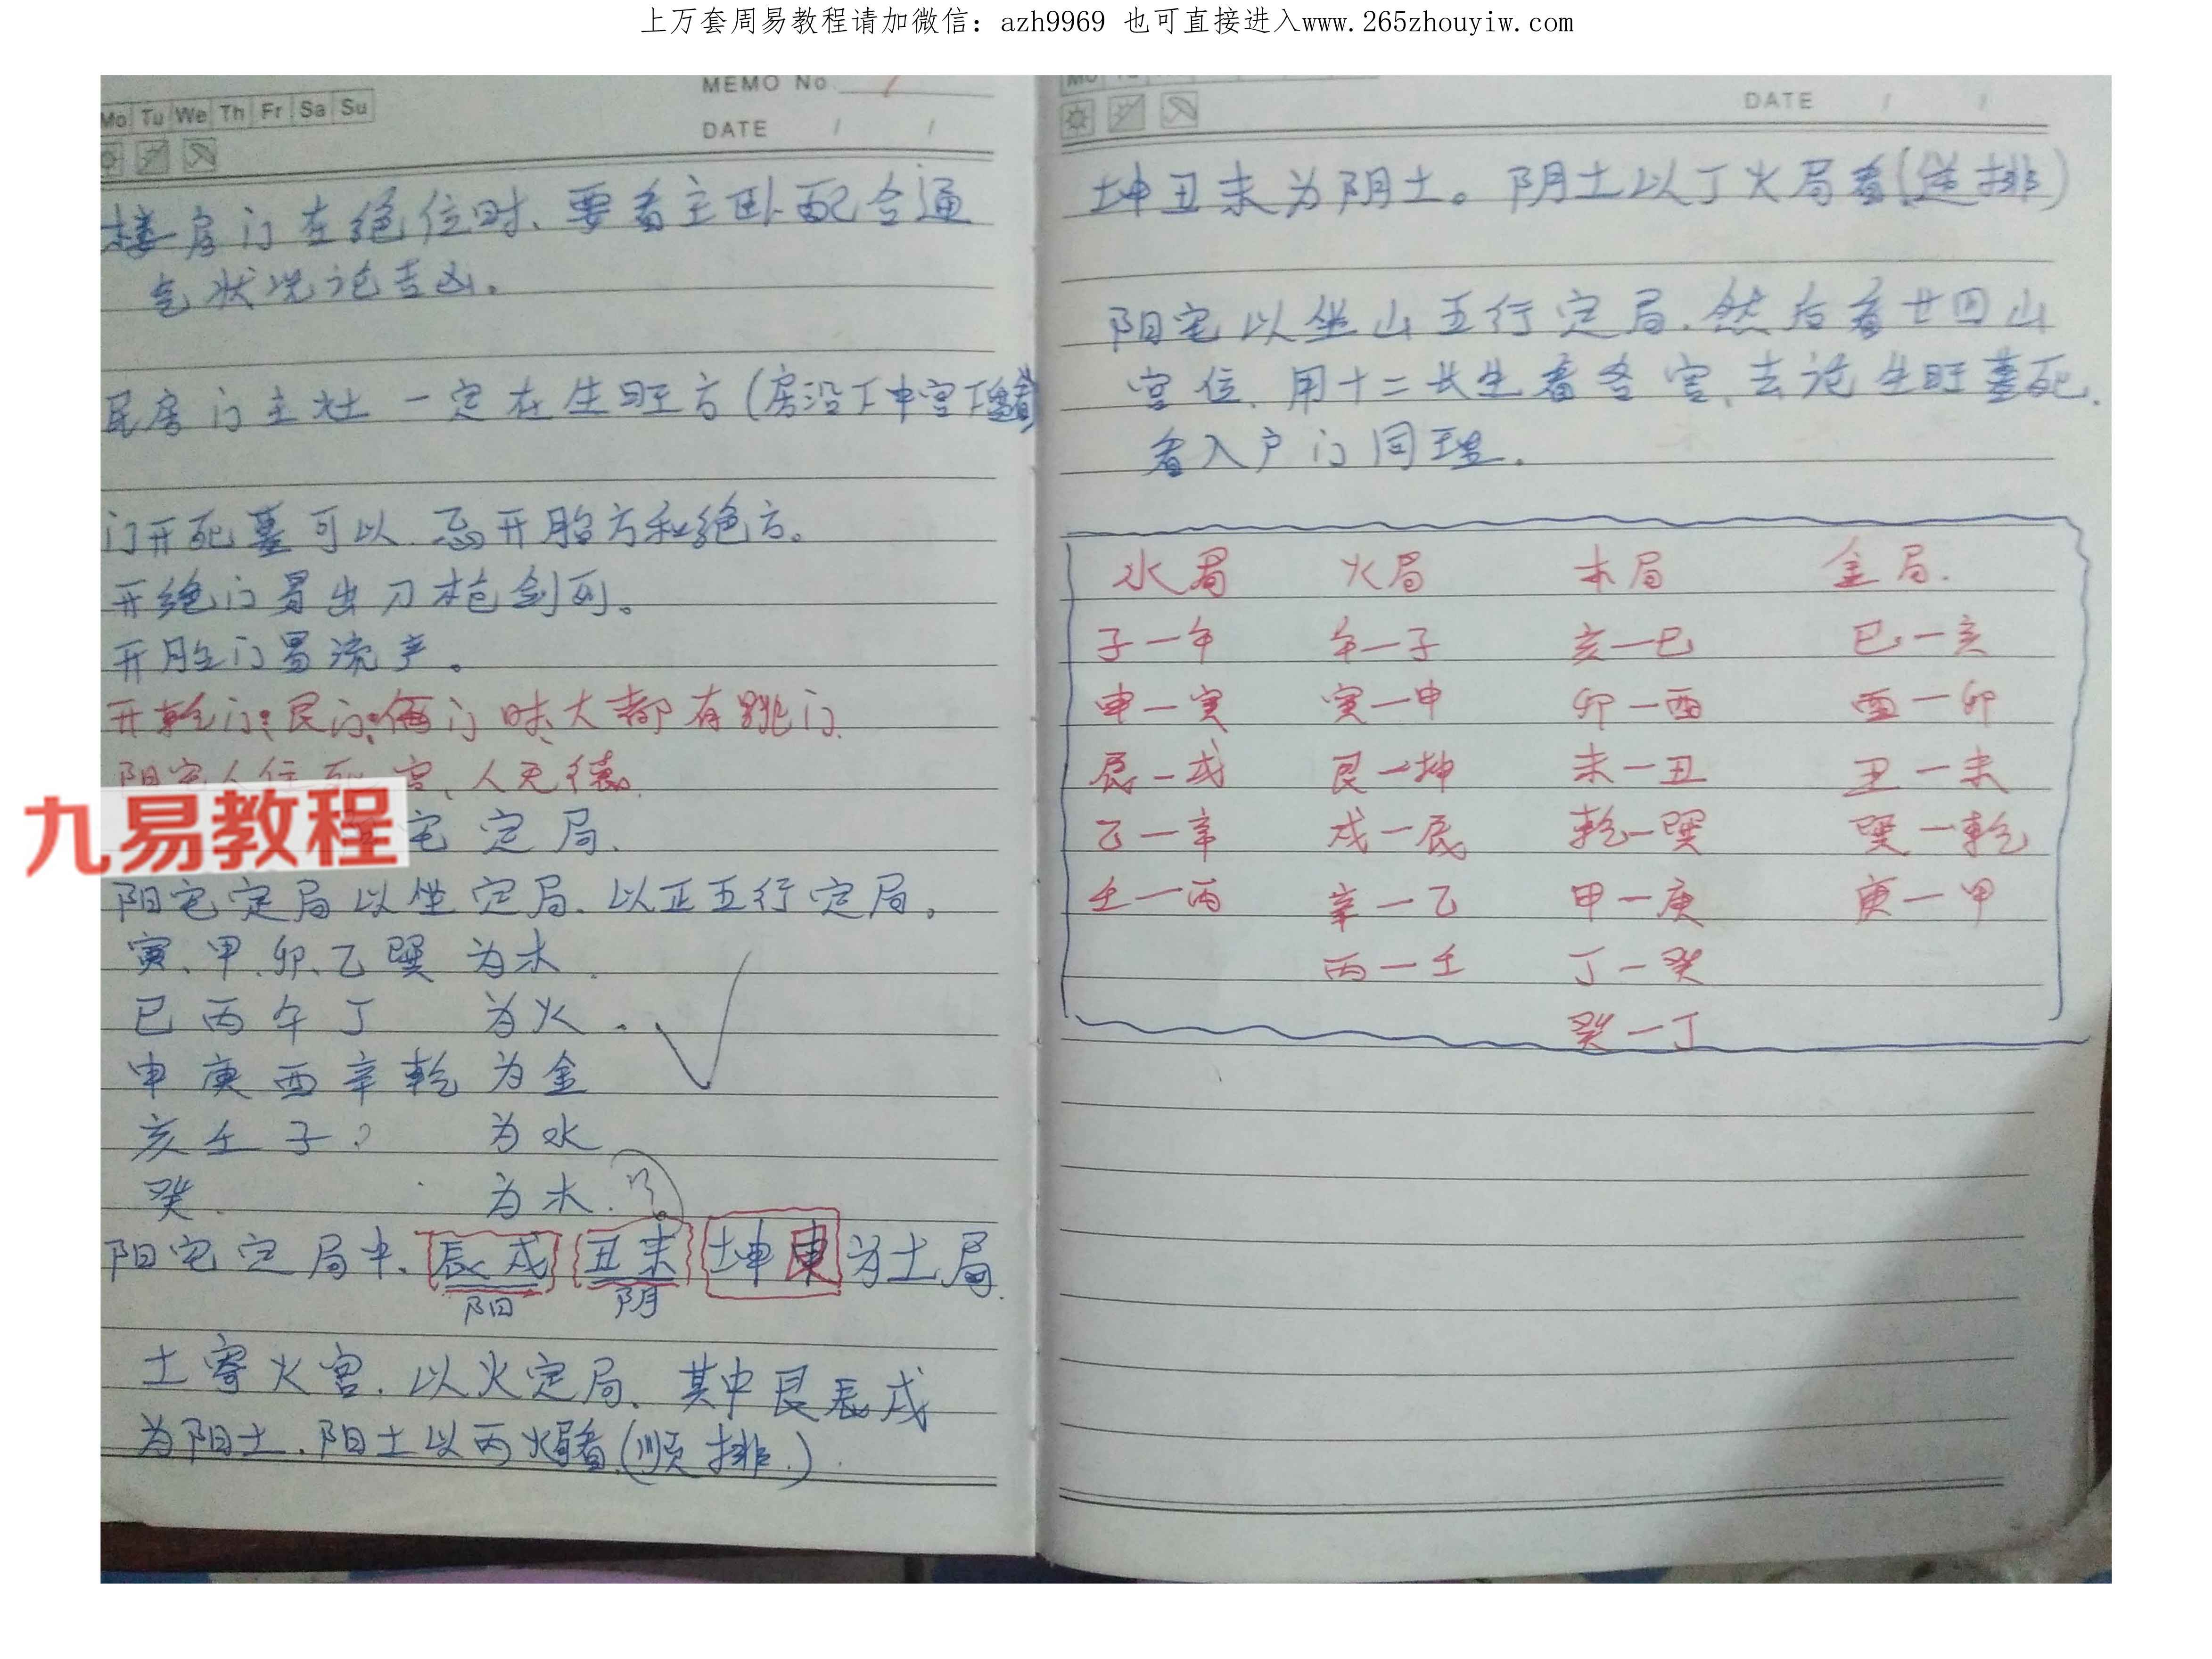 上万套周易教程请加微信：azh9969 也可直接进入www.265zhouyiw.com
MEMO No.
Mo Tu We Th Fr Sa Su
DATE / /
楼房门在绝位时、要看主卧配合通
气状况论吉凶。
民房门主灶一定在生旺方(房没 中宫
门开死墓可以.忌开胎方和绝方。
开绝门易出刀枪剑 。
开胎门易流产。
开乾门:艮门: 门时、大都有跳门.
阳宅人住死宫、人无德.
九易教程
宅定局、
阳宅定局以坐定局.以正五行定局。
寅、甲.卯、乙巽 为木.
巳丙午丁 为火.
申庚酉辛乾 为金
亥壬子? 为水
癸. 为木.??
阳宅定局中、辰戌 丑未 坤 为土局.
阳 阴
土寄火宫.以火定局.其中艮辰戌
为阳土.阳土以丙火局看.(顺排.)
DATE / /
坤丑未为阴土。阴土以丁火局看(逆排)
阳宅以坐山五行定局.然后看廿四山
宫位.用十二长生看各宫、去论生旺墓死.
看入户门同理.
水局 火局 木局 金局.
子一午 午一子 亥一巳 巳一亥
申一寅 寅一申 卯一酉 酉一卯
辰一戌 艮一坤 未一丑 丑一未
乙一辛 戌一辰 乾一巽 巽一乾
壬一丙 辛一乙 甲一庚 庚一甲
丙一壬 丁一癸
癸一丁